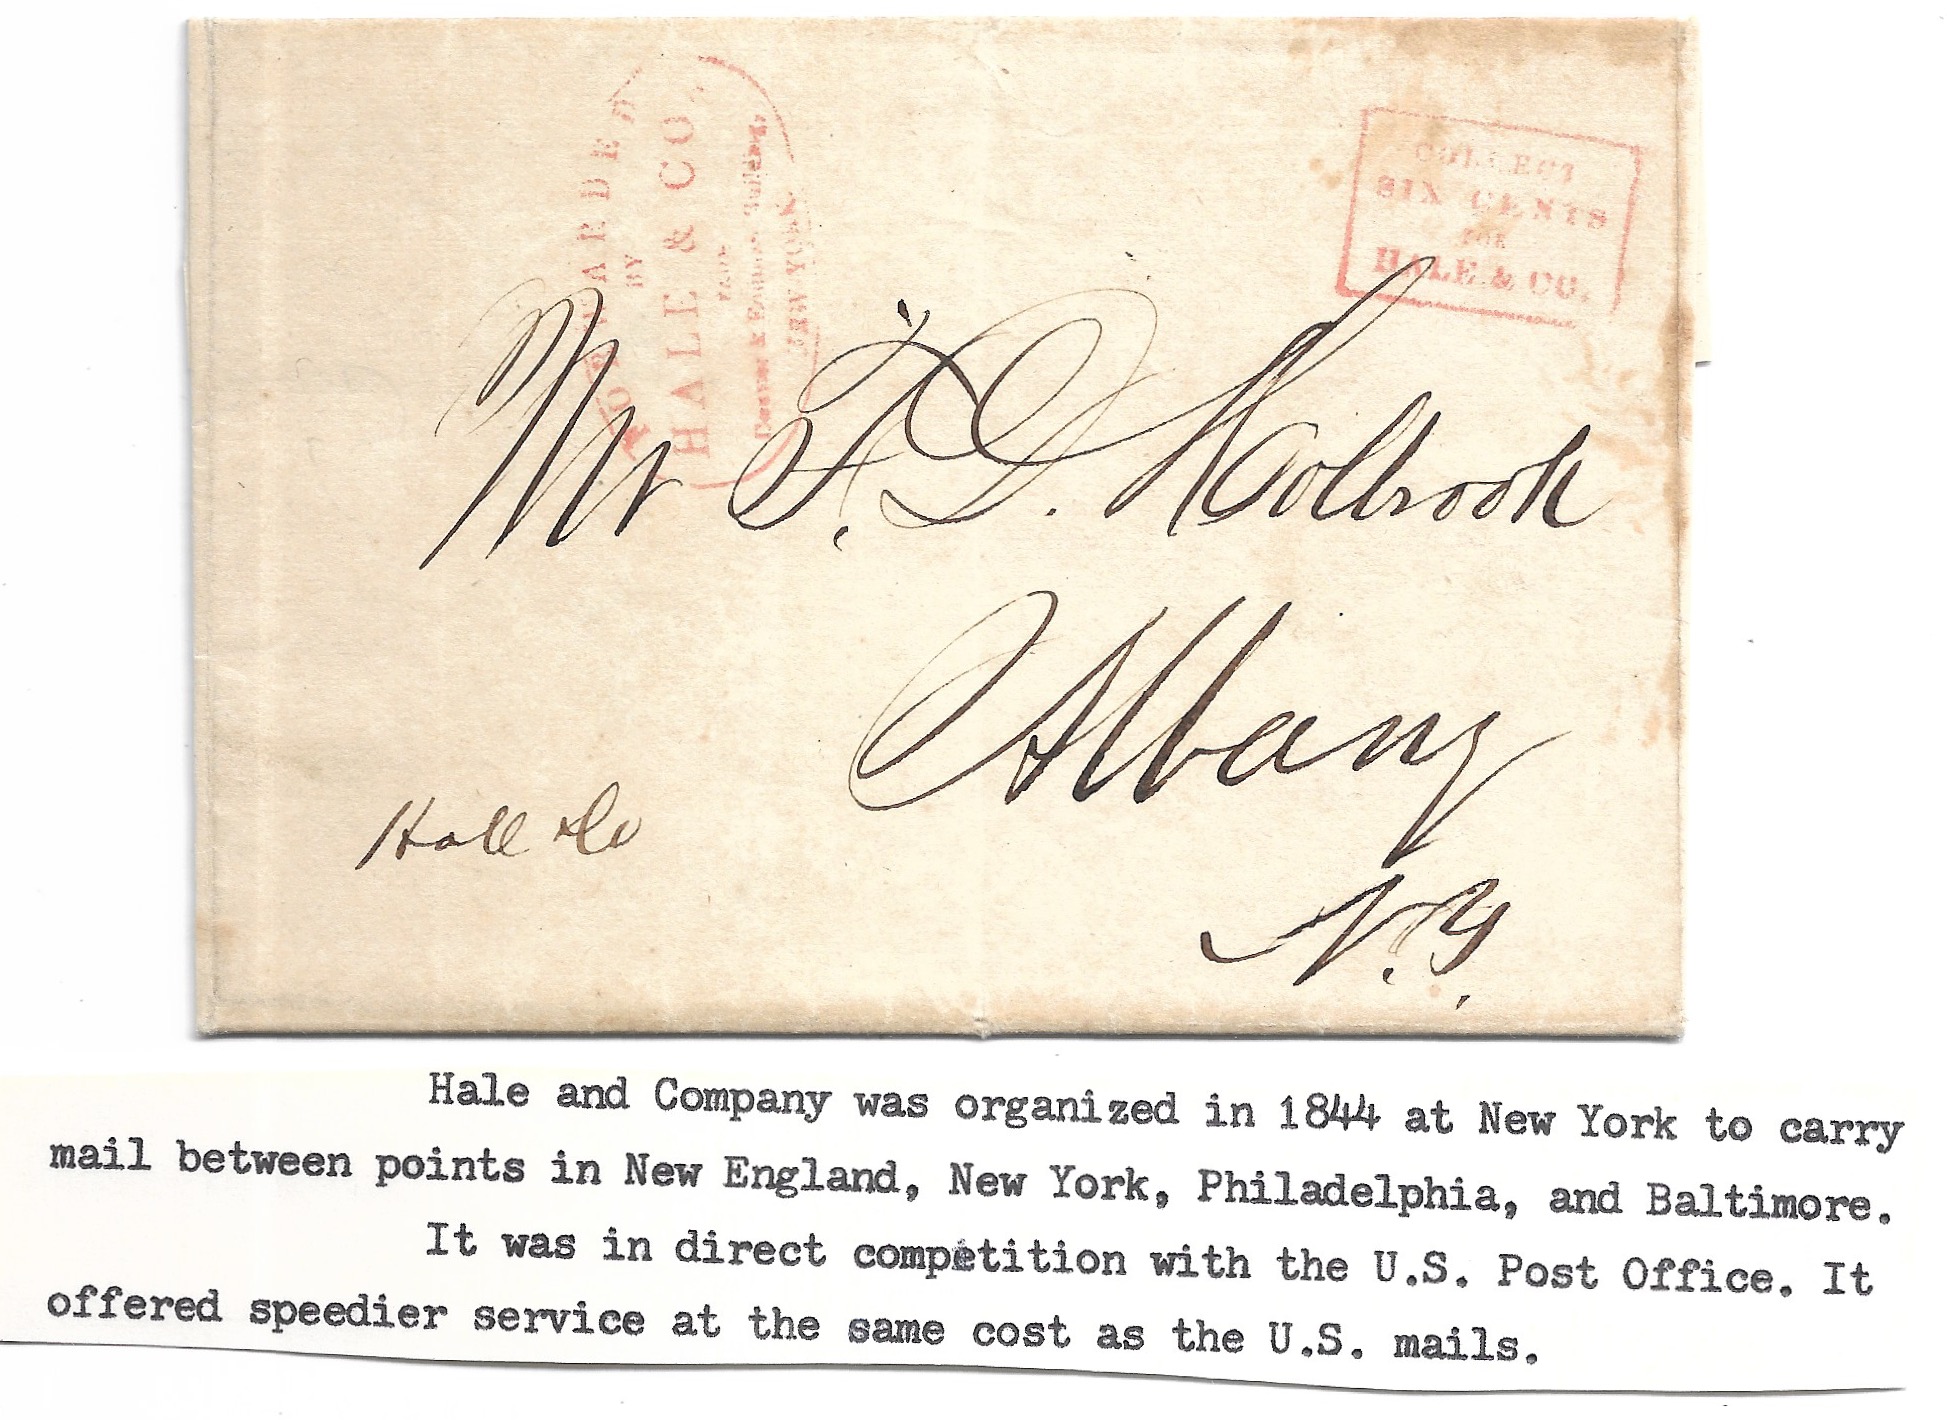 FORWARDED
BY
HALE & CO.
FROM
NEW YORK
COLLECT
SIX CENTS
FOR
HALE & CO.
Mr F. D. Holbrook
Albany
N.Y.
Hale & Co
Hale and Company was organized in 1844 at New York to carry
mail between points in New England, New York, Philadelphia, and Baltimore.
It was in direct competition with the U.S. Post Office. It
offered speedier service at the same cost as the U.S. mails.